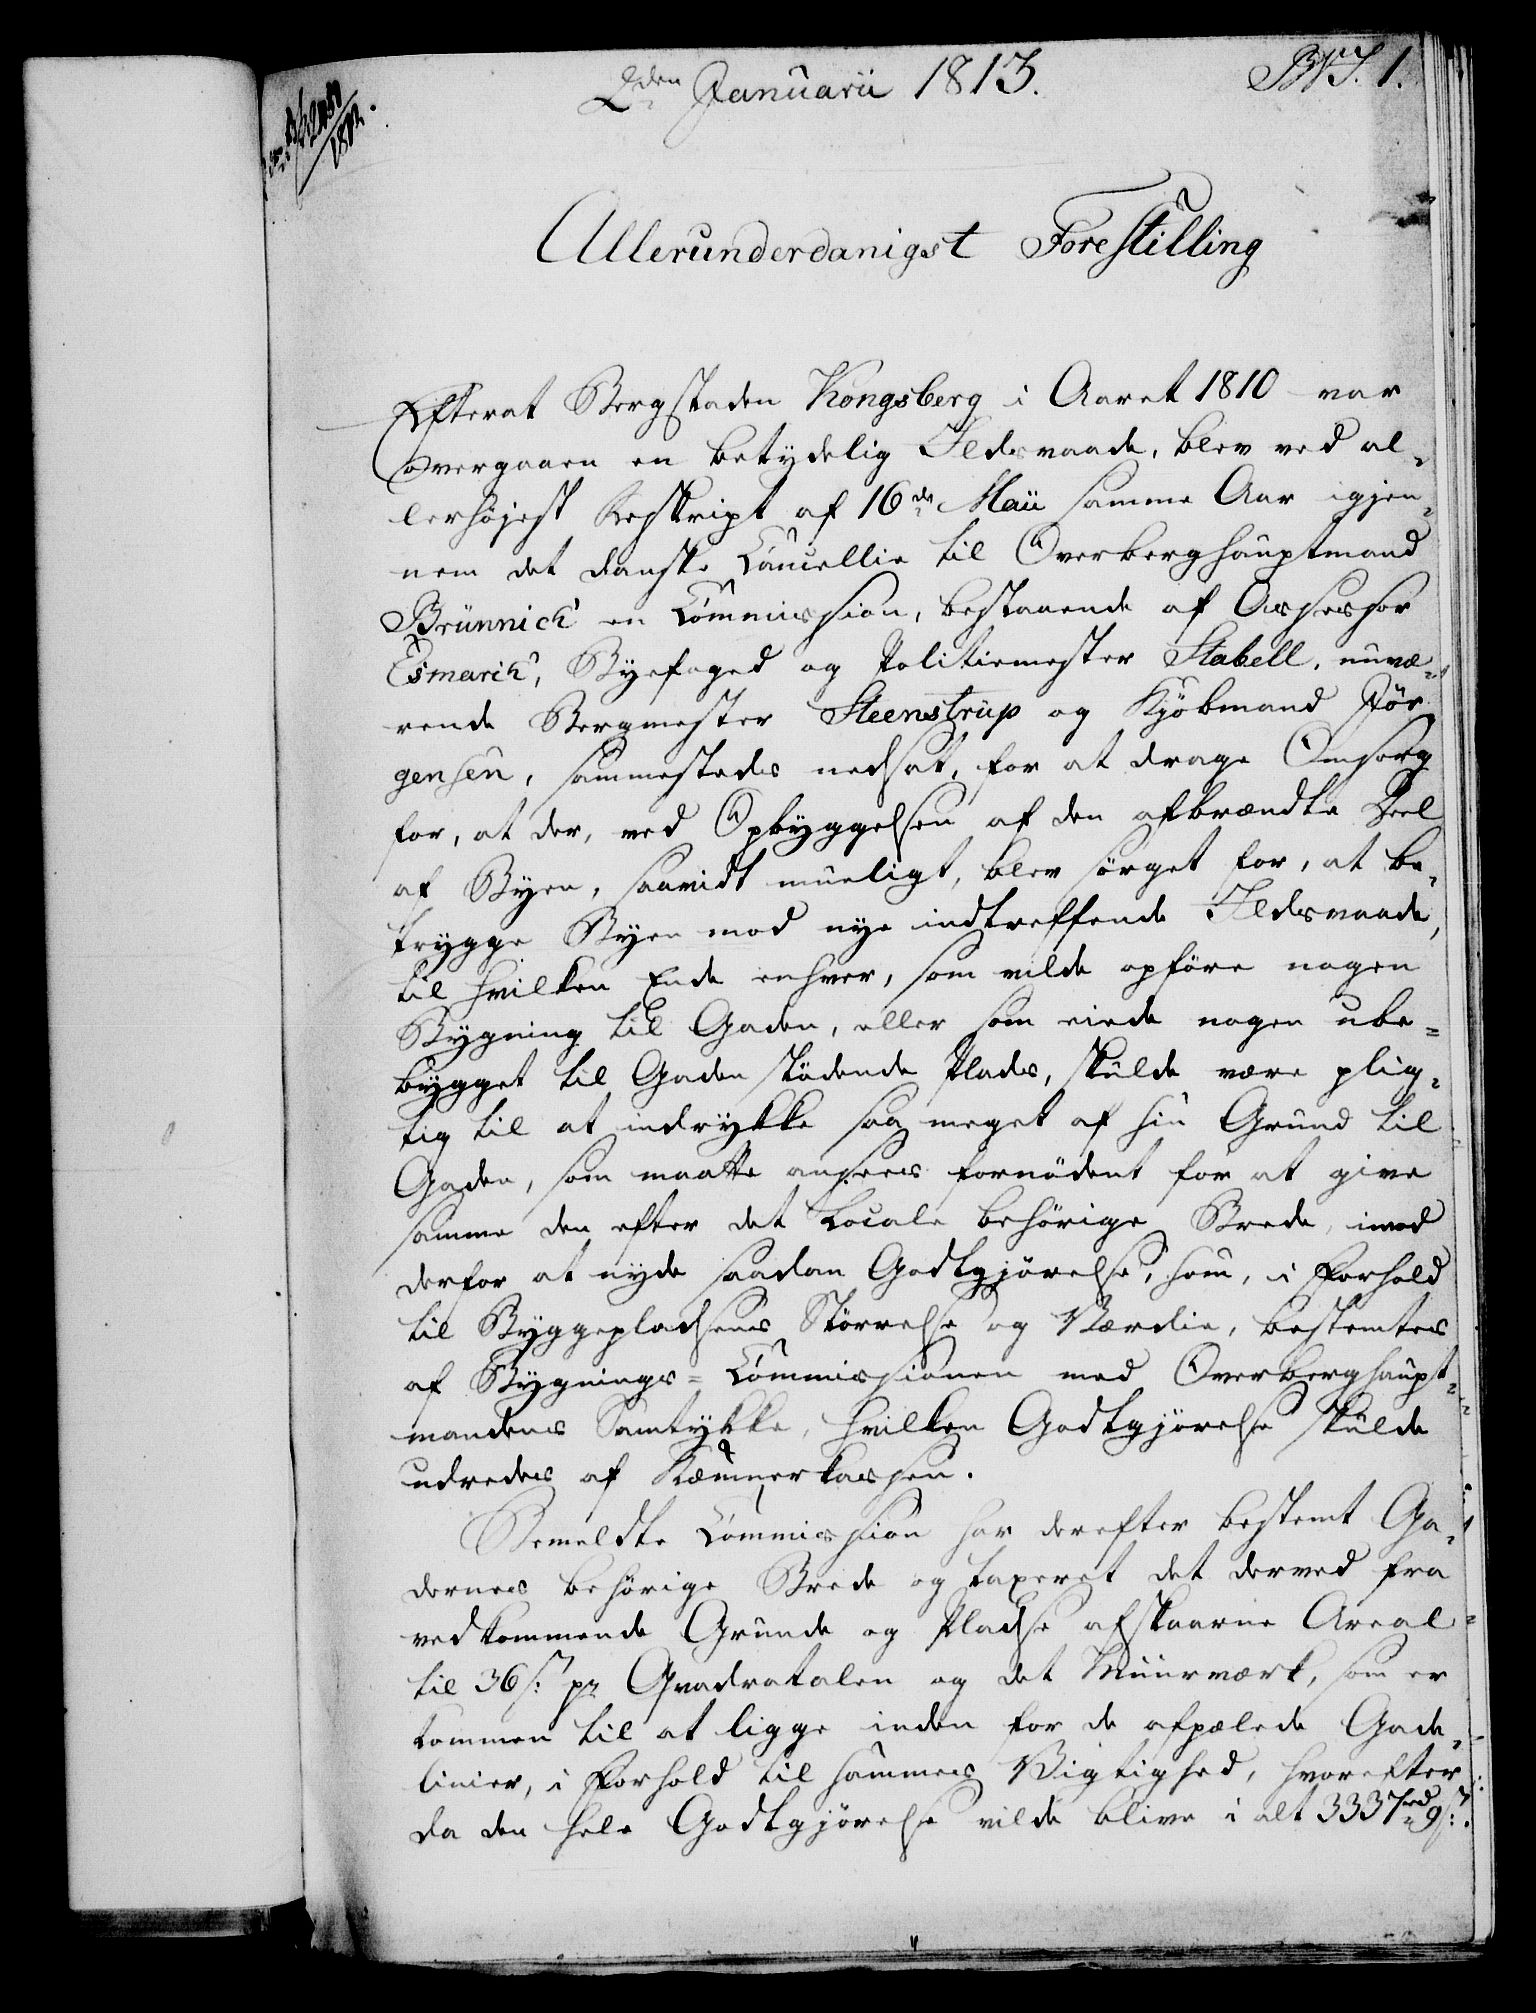 2den Januarii 1813.
1812.
Allerunderdanigst Forestilling
Efterat Bergstaden Kongsberg i Aaret 1810 var
overgaaen en betydelig Ildsvaade, blev ved al-
lerhøjest Reskript af 16de Maii samme Aar igjen-
nem det danske Cancellie til Overberghauptmand
Brünnich en Commission, bestaaende af Assessor
Esmarch, Byefoged og Politiemester Stabell, nuvæ-
rende Bergmester Steenstrup og Kjöbmand Jör-
gensen, sammesteds nedsat, for at drage Omsorg
for, at der, ved Opbyggelsen af den afbrændte Deel
af Byen, saavidt mueligt, blev sörget for, at be-
trygge Byen mod nye indtreffende Ildsvaade,
til hvilken Ende enhver, som vilde opföre nogen
Bygning til Gaden, eller som eiede nogen ube=
bygget til Gaden stödende Plads, skulde være plig-
tig til at indrykke saa meget af sin Grund til
Gaden, som maatte ansees fornödent for at give
samme den efter det Locale behörige Brede, imod
derfor at nyde saadan Godtgjörelse, som, i Forhold
til Byggepladsens Störrelse og Værdie, bestemtes
af Bygnings=Commissionen med Overberghaupt-
mandens Samtykke, hvilken Godtgjörelse skulde
udredes af Kæmnerkassen.
Bemeldte Commission har derefter bestemt Ga-
dernes behörige Brede og taxeret det derved fra
vedkommende Grunde og Pladse afskaarne Areal
til 36 s: pr Qvadratalen og det Muurværk, som er
kommen til at ligge inden for de afpælede Gade-
linier, i Forhold til sammes Vigtighed, hvorefter
da den hele Godtgjörelse vilde blive i alt 3337rd 9 s:.